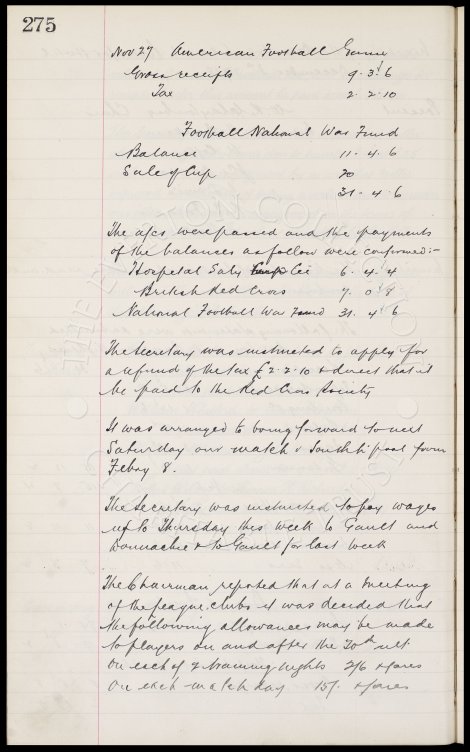 275
Nov 27 American Football Game
Gross receipts 9. 3. 6
Tax 2. 2. 10
Football National War Fund
Balance 11. 4. 6
Sale of Cup 20
31. 4. 6
The a/cs were passed and the payments
of the balances as follow were confirmed:-
Hospital Saty Cee 6. 4. 4
British Red Cross 7. 0. 8
National Football War Fund 31. 4. 6
The Secretary was instructed to apply for
a refund of the tax £2. 2. 10 & direct that it
be paid to the Red Cross Society
It was arranged to bring forward to next
Saturday our match v Southport from
Febry 8.
The Secretary was instructed to pay wages
up to Thursday this week to Gault and
Donnachie & to Gault for last week
The Chairman reported that at a meeting
of the league clubs it was decided that
the following allowances may be made
to players on and after the 20th ult
On each of 2 training nights 2/6 & fares
On each match day 15/. & fares